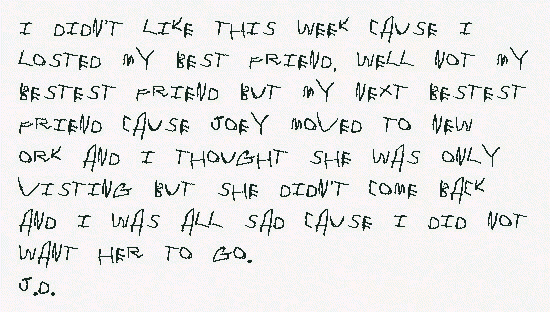 I DIDN'T LIKE THIS WEEK CAUSE I
LOSTED MY BEST FRIEND, WELL NOT MY
BESTEST FRIEND BUT MY NEXT BESTEST
FRIEND CAUSE JOEY MOVED TO NEW
ORK AND I THOUGHT SHE WAS ONLY
VISTING BUT SHE DIDN'T COME BACK
AND I WAS ALL SAD CAUSE I DID NOT
WANT HER TO GO.
J.D.